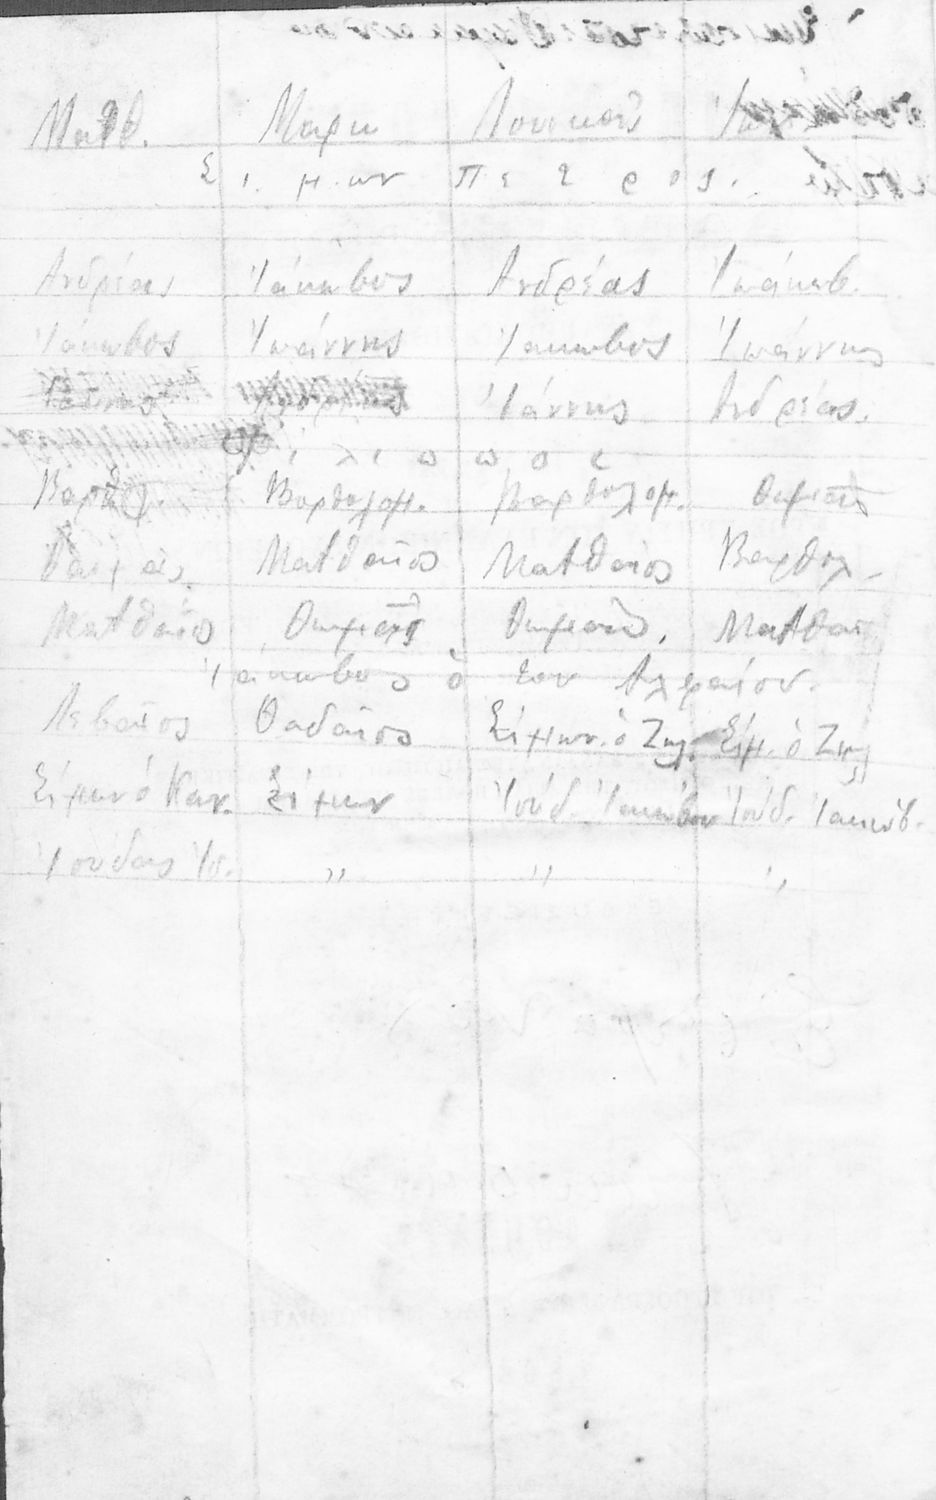 Ματθ. Μαρκ Λουκᾶς
Σ ι μ ων Π ε τ ρ ο ς.
Ανδρέας Ἰάκωβος Ανδρέας Ἰάκωβ.
Ἰάκωβος Ἰωάννης Ἰακωβος Ἰωάννης
Ἰάννης Ανδρέας.
Φ ι λ ι π π ο ς
Βαρθολ. Βαρθολομ. Βαρθολομ. Θωμᾶς
Θωμᾶς Ματθαῖος Ματθαῖος Βαρθολ
Ματθαῖος Θωμᾶς Θωμᾶς. Ματθαῖ
Ἰάκωβος ὁ του Αλφαίου.
Λεβαῖος Θαδαῖος Σίμων. ὁ Ζηλ. Σίμ. ὁ Ζηλ
Σίμων ὁ Καν. Σιμων Ἰούδ. Ἰακώβου Ἰούδ. Ἰακώβ.
Ἰούδας Ἰσ. ,, ,, ,,